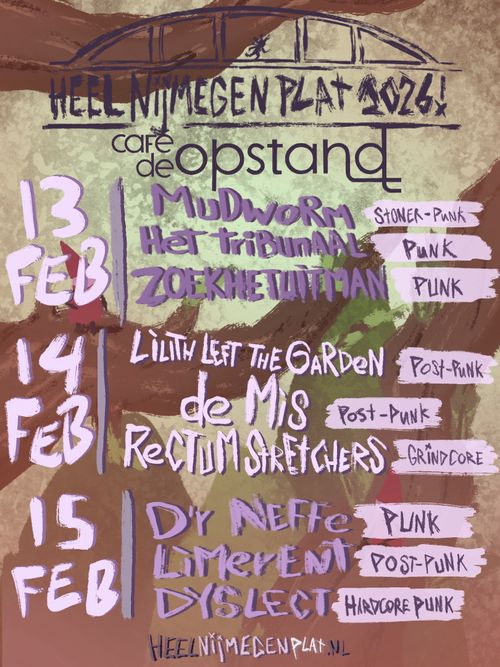 HEEL NIJMEGEN PLAT 2026!
café
de opstand
13 FEB
MUDWORM STONER-PUNK
Het TRIBUNAAL PUNK
ZOEKHETUITMAN PUNK
14 FEB
LILITH LEFT THE GARDEN POST-PUNK
de MIS POST-PUNK
RECTUM STRETCHERS GRINDCORE
15 FEB
D'r NEFFE PUNK
LIMERENT POST-PUNK
DYSLECT HARDCORE PUNK
HEELNIJMEGENPLAT.NL